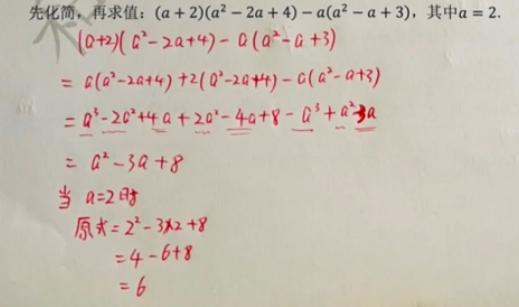 先化简，再求值：(a + 2)(a² − 2a + 4) − a(a² − a + 3)，其中a = 2.
(a+2)(a²-2a+4) - a(a²-a+3)
= a(a²-2a+4)+2(a²-2a+4)-a(a²-a+3)
= a³-2a²+4a+2a²-4a+8-a³+a²-3a
= a²-3a+8
当 a=2时
原式=2²-3×2+8
=4-6+8
=6